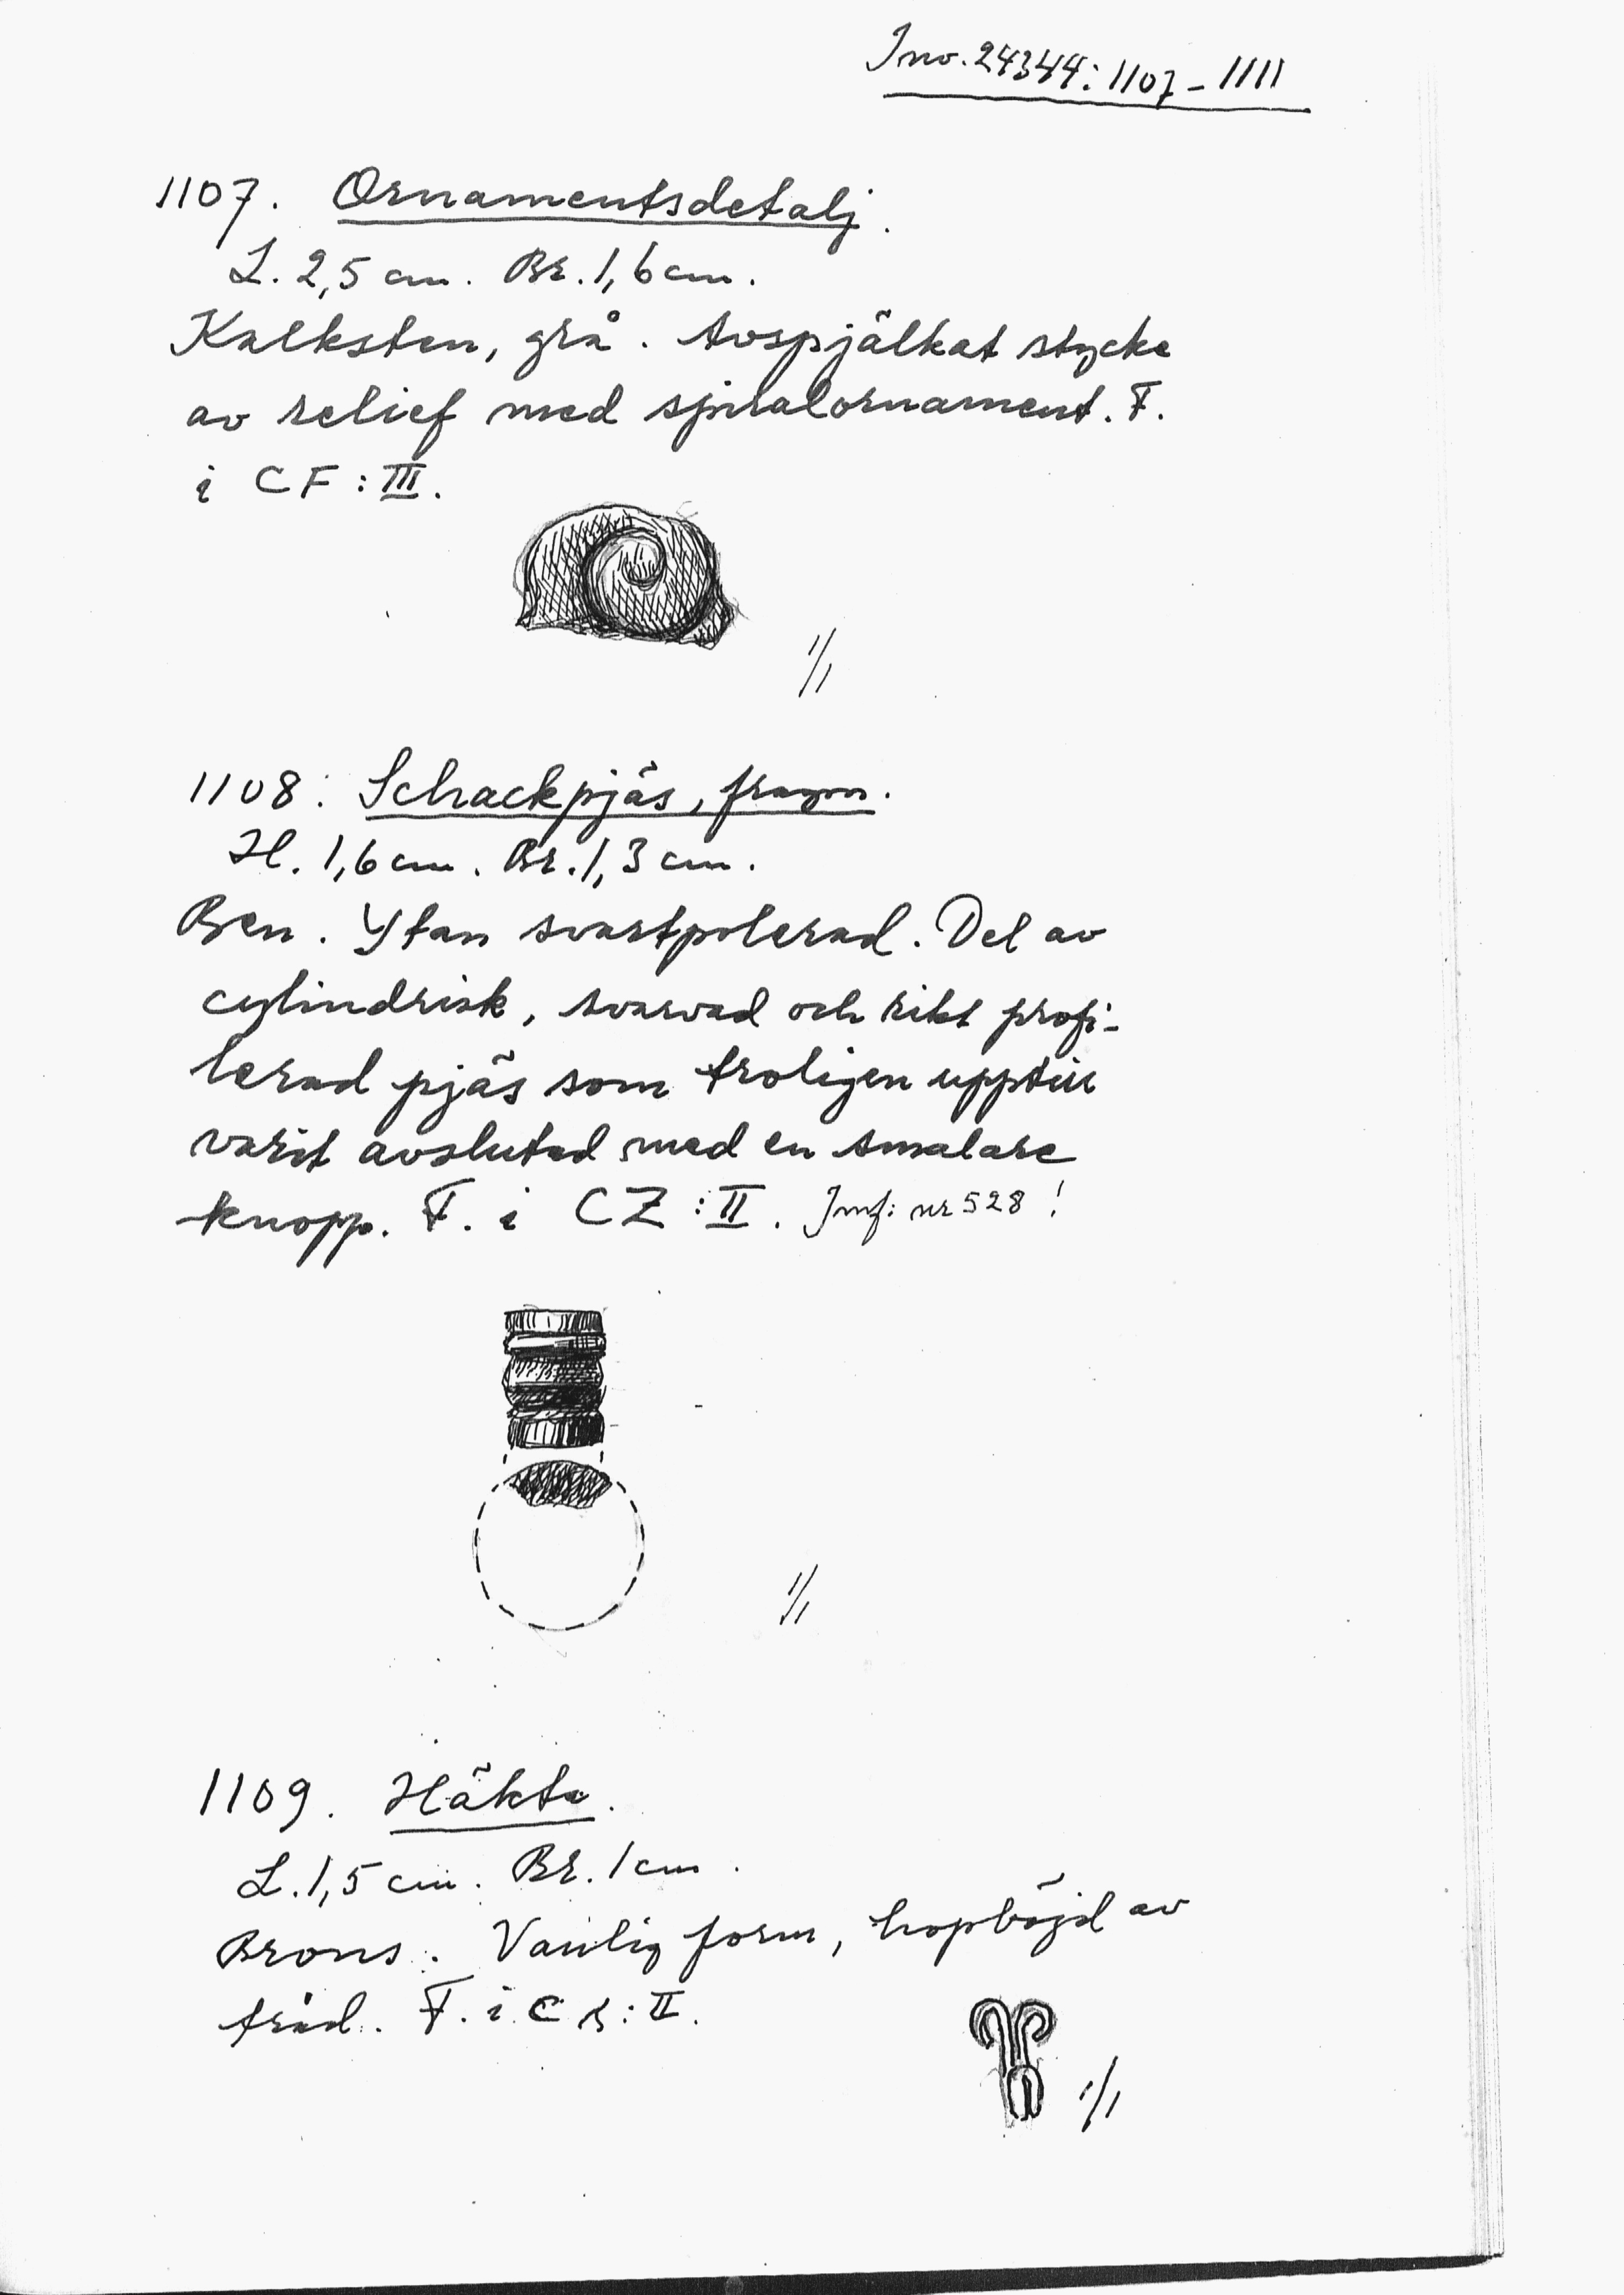 Inv. 24344: 1107 - 1111
1107. Ornamentsdetalj.
L. 2,5 cm. Br. 1,6 cm.
Kalksten, grå. Avspjälkat stycke
av relief med spiralornament. F.
i CF : III.
1/1
1108. Schackpjäs, fragm.
H. 1,6 cm. Br. 1,3 cm.
Ben. Ytan svartpolerad. Del av
cylindrisk, svarvad och rikt profi-
lerad pjäs som troligen upptill
varit avslutad med en smalare
knopp. F. i CZ : II. Jmf: nr 528 !
1/1
1109. Häkta.
L. 1,5 cm. Br. 1 cm.
Brons. Vanlig form, hopböjd av
tråd. F. i : II.
1/1